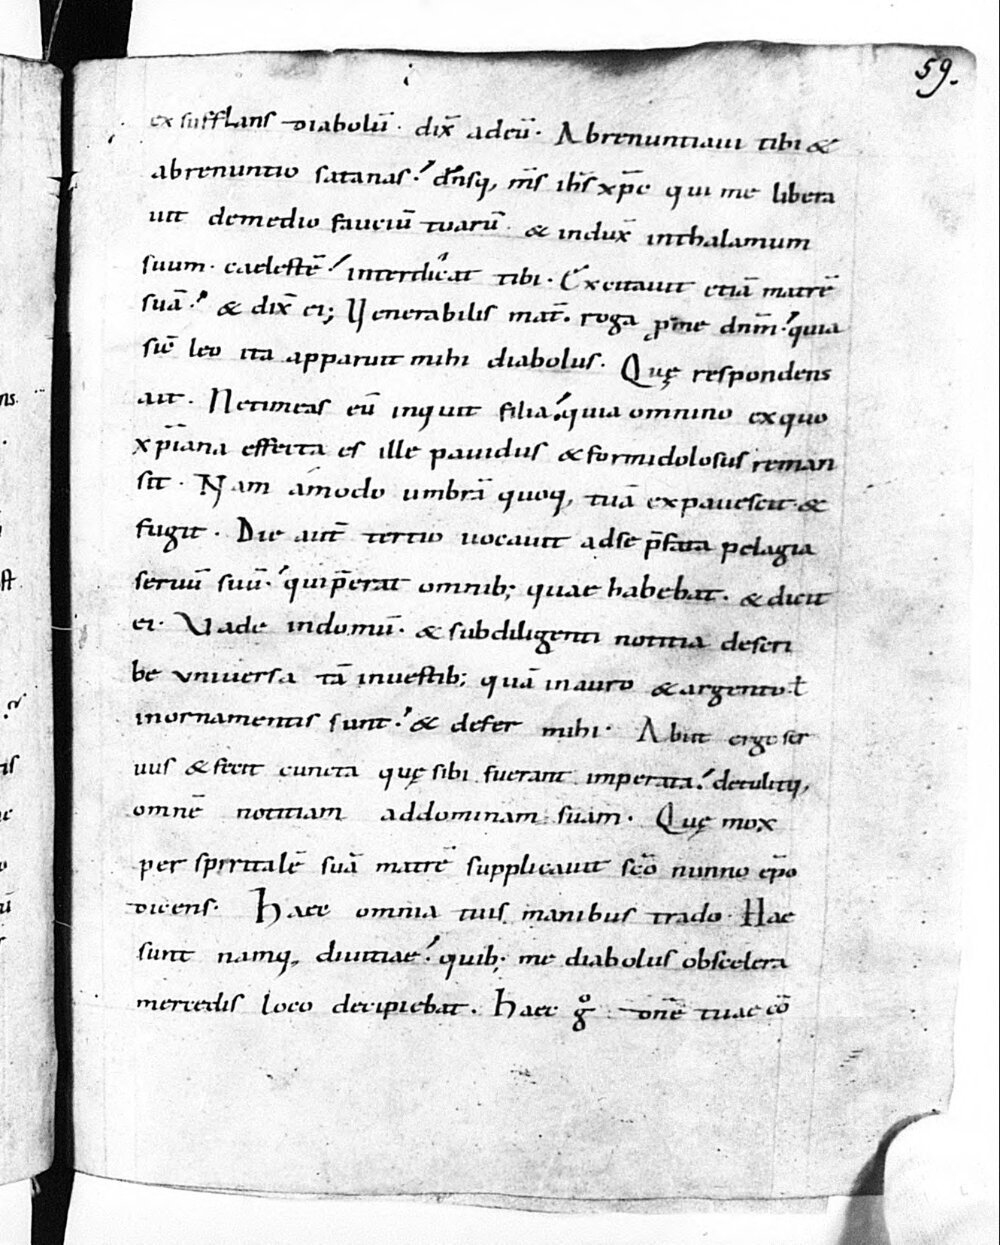 59.
exsufflans diabolū. dix̄ adeū. Abrenuntiaui tibi &
abrenuntio satanas. dn̄sq, m̄s ih̄s xp̄c qui me libera
uit demedio fauciū tuarū. & indux̄ inthalamum
suum. caelestē interdicat tibi. Excitauit etiā matrē
suā. & dix̄ ei; Uenerabilis mat̄. roga p̱me dnm̄. quia
sic̄ leo ita apparuit mihi diabolus. Quę respondens
ait. Netimeas eū inquit filia. quia omnino exquo
xp̄iana effecta es ille pauidus & formidolosus reman
sit. Nam ámodo umbrā quoq, tuā expauescit. &
fugit. Die aut̄ tertio uocauit adse p̄fata pelagia
seruū suū. quip̄erat omnib; quae habebat. & dicit
ei. Uade indomū. & subdiligenti notitia descri
be uniuersa tā inuestib; quā inauro & argento ł
inornamentis sunt. & defer mihi. Abiit ergo ser
uus & fecit cuncta quę sibi fuerant imperata. detulitq,
omnē notitiam addominam suam. Quę mox
per spiritalē suā matrē supplicauit sc̄o nunno ep̄o
dicens. Haec omnia tuis manibus trado. Hae
sunt namq, diuitiae. quib; me diabolus obscelera
mercedis loco decipiebat. Haec gͦ dn̄e tuae cō